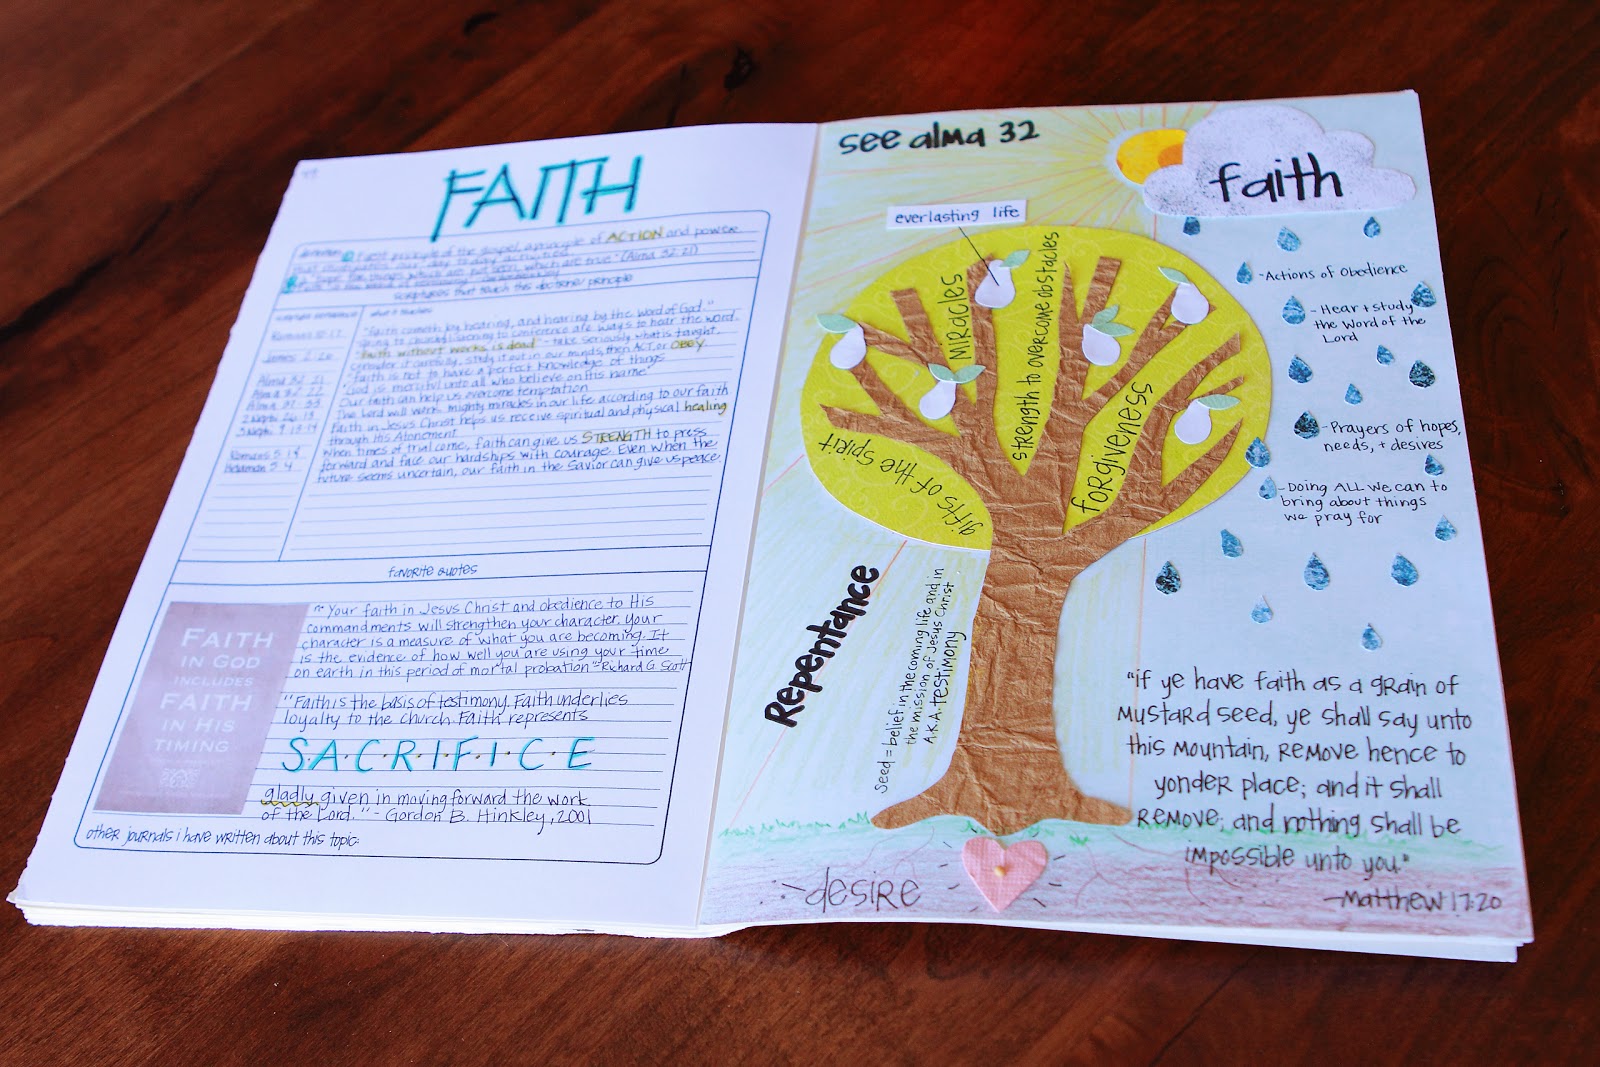 FAITH
first principle of the gospel, a principle of ACTION and power
which are true" (Alma 32:21)
scriptures that teach this doctrine/principle
what it teaches
Romans 10:17
"Faith cometh by hearing, and hearing by the word of God."
listening to conference are ways to hear the word.
James 2:26
"Faith without works is dead" - take seriously what is taught.
carefully, study it out in our minds, then ACT, or OBEY
Alma 32:21
"faith is not to have a perfect knowledge of things"
Alma 32:22
"God is merciful unto all who believe on His name"
Alma 37:33
Our faith can help us overcome temptation
2 Nephi 26:13
The Lord will work mighty miracles in our life according to our faith
Faith in Jesus Christ helps us receive spiritual and physical healing
through His Atonement
Romans 5:1-5
When times of trial come, faith can give us STRENGTH to press
Helaman 5:9
forward and face our hardships with courage. Even when the
future seems uncertain, our faith in the Savior can give us peace
favorite quotes
FAITH
IN GOD
INCLUDES
FAITH
IN HIS
TIMING
"Your faith in Jesus Christ and obedience to His
commandments will strengthen your character. Your
character is a measure of what you are becoming. It
is the evidence of how well you are using your time
on earth in this period of mortal probation" -Richard G. Scott
"Faith is the basis of testimony. Faith underlies
loyalty to the church. Faith represents
S.A.C.R.I.F.I.C.E
gladly given in moving forward the work
of the Lord." - Gordon B. Hinkley, 2001
other journals i have written about this topic:
see alma 32
faith
everlasting life
miracles
strength to overcome obstacles
forgiveness
gifts of the spirit
-Actions of Obedience
-Hear + study
the Word of the
Lord
-Prayers of hopes,
needs, + desires
-Doing ALL we can to
bring about things
we pray for
Repentance
seed = belief in the coming life and in
the mission of Jesus Christ
A.K.A. TESTIMONY
"if ye have faith as a grain of
mustard seed, ye shall say unto
this mountain, remove hence to
yonder place; and it shall
remove; and nothing shall be
impossible unto you."
-Matthew 17:20
desire